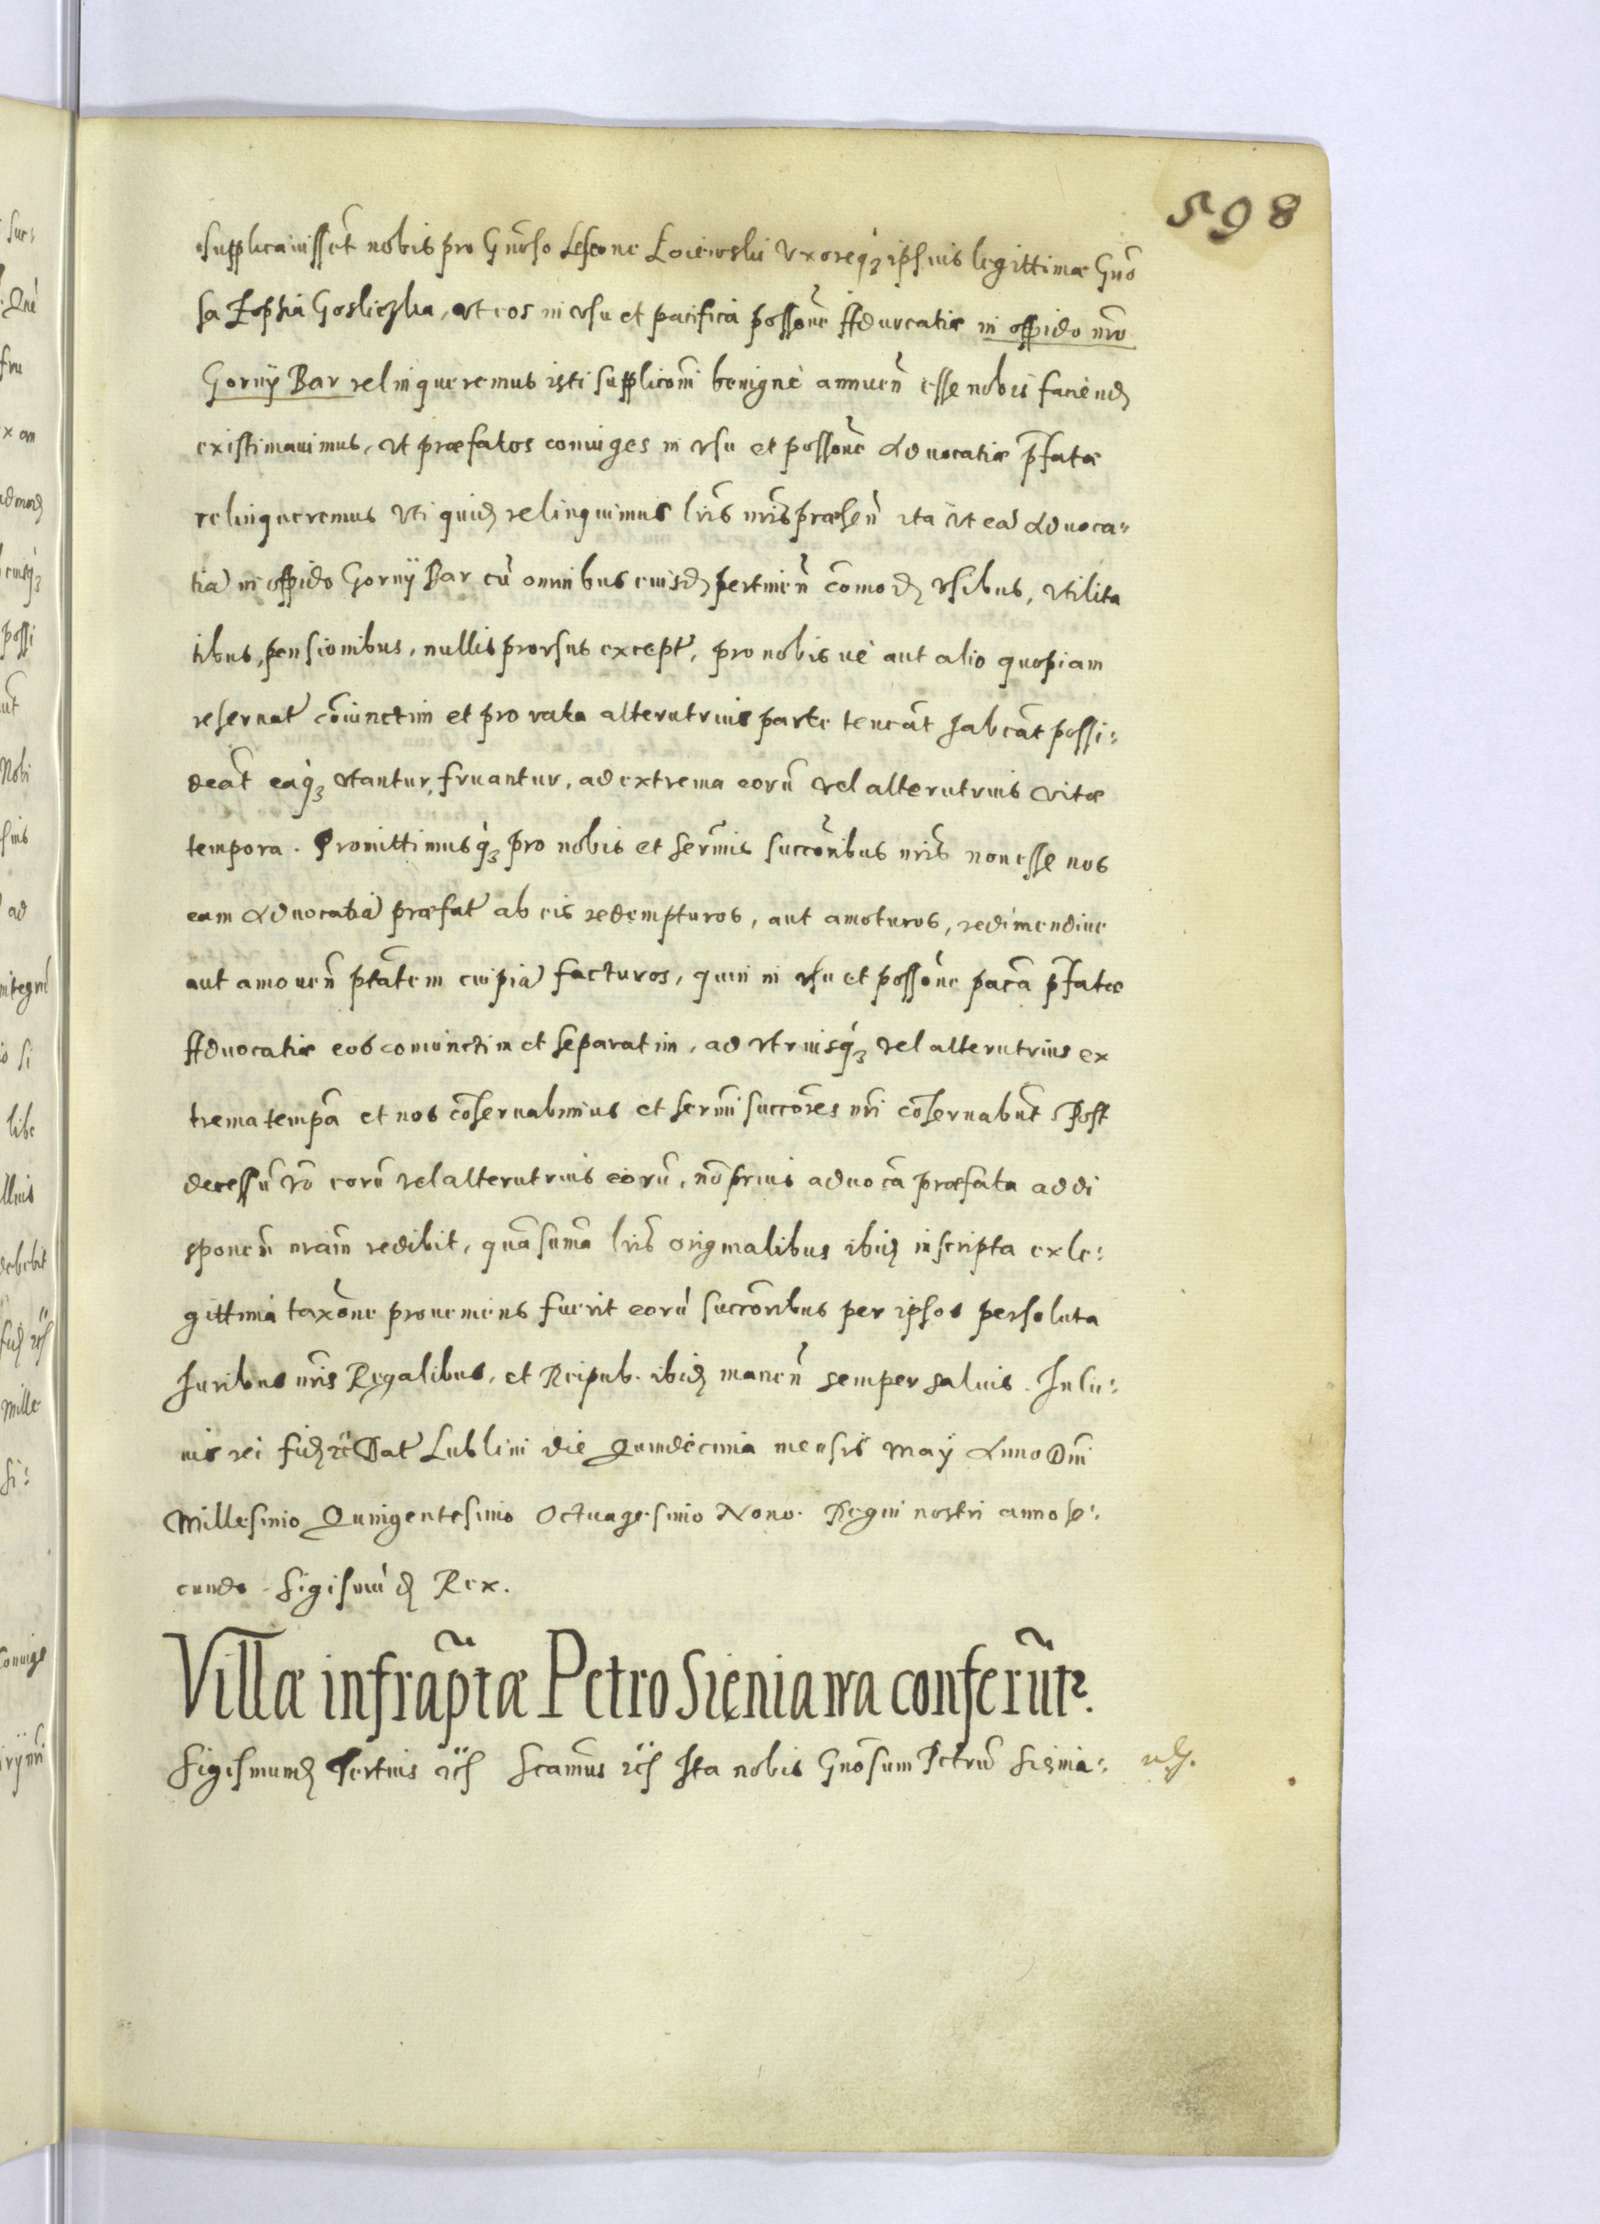 598
supplicauissēt nobis pro Gnōso Lescone Łoiewski vxoreq́ʒ ipsuis legittimæ Gnō
sa Zophia Gosliczka, vt eos in vsu et pacifica possōne Aduocatiæ in oppido nrō
Gornÿ Bar relinqueremus isti supplicōni benignè annuen̄ esse nobis faciendʒ
existimauimus, vt præfatos coniuges in vsu et possōne Aduocatiæ p̄fatæ
relinqueremus vti quidʒ relinquimus lrīs nrīs præsen̄ ita vt eā Aduoca⸗
tiā in oppido Gornÿ Bar cū omnibus eiusdʒ pertinen̄ cōmodʒ vsibus, vtilita
tibus, pensionibus, nullis prorsus except̄, pro nobis ué aut alio quopiam
reseruat̄ cōiunctim et pro rata alterutrius parte teneāt habeāt possi⸗
deāt eaq́ʒ vtantur, fruantur, ad extrema eorū vel alterutrius vitæ
tempora. Promittimusq́ʒ pro nobis et serm̄is succōribus nrīs non esse nos
eam Aduocatiā præfat̄ ab eis redempturos, aut amoturos, redimendiue
aut amouen̄ ptātem cuipiā facturos, quin in vsu et possōne pacā p̄fatæ
Aduocatiæ eos coniunctim et separatim, ad vtriusq́ʒ vel alterutrius ex
trema tempā et nos cōseruabimus et serm̄i succōres nrī cōseruabūt Post
decessū vō eorū vel alterutrius eorū, nō prius aduocā præfata ad di
sponen̄ nrām redibit, quā sum̄a lrīs originalibus ibidʒ inscripta ex le⸗
gittima taxōne proueniens fuerit eorū succōribus per ipsos persoluta
Juribus nrīs Regalibus, et Reipub. ibidʒ manen̄ semper saluis. In cu⸗
ius rei fidʒ ꝛc̈ Dat̄ Lublini die Quindecima mensis Maÿ Anno Dnī
Millesimo Quingentesimo Octuagesimo Nono. Regni nostri anno se⸗
cundo. Sigismūdʒ Rex.
Villæ infrāptæ Petro Sieniawa conferūtr.
Sigismundʒ Tertius ꝛc̈ʒ Scāmus ꝛc̈ʒ Ita nobis Gnōsum Petrū Sienia⸗